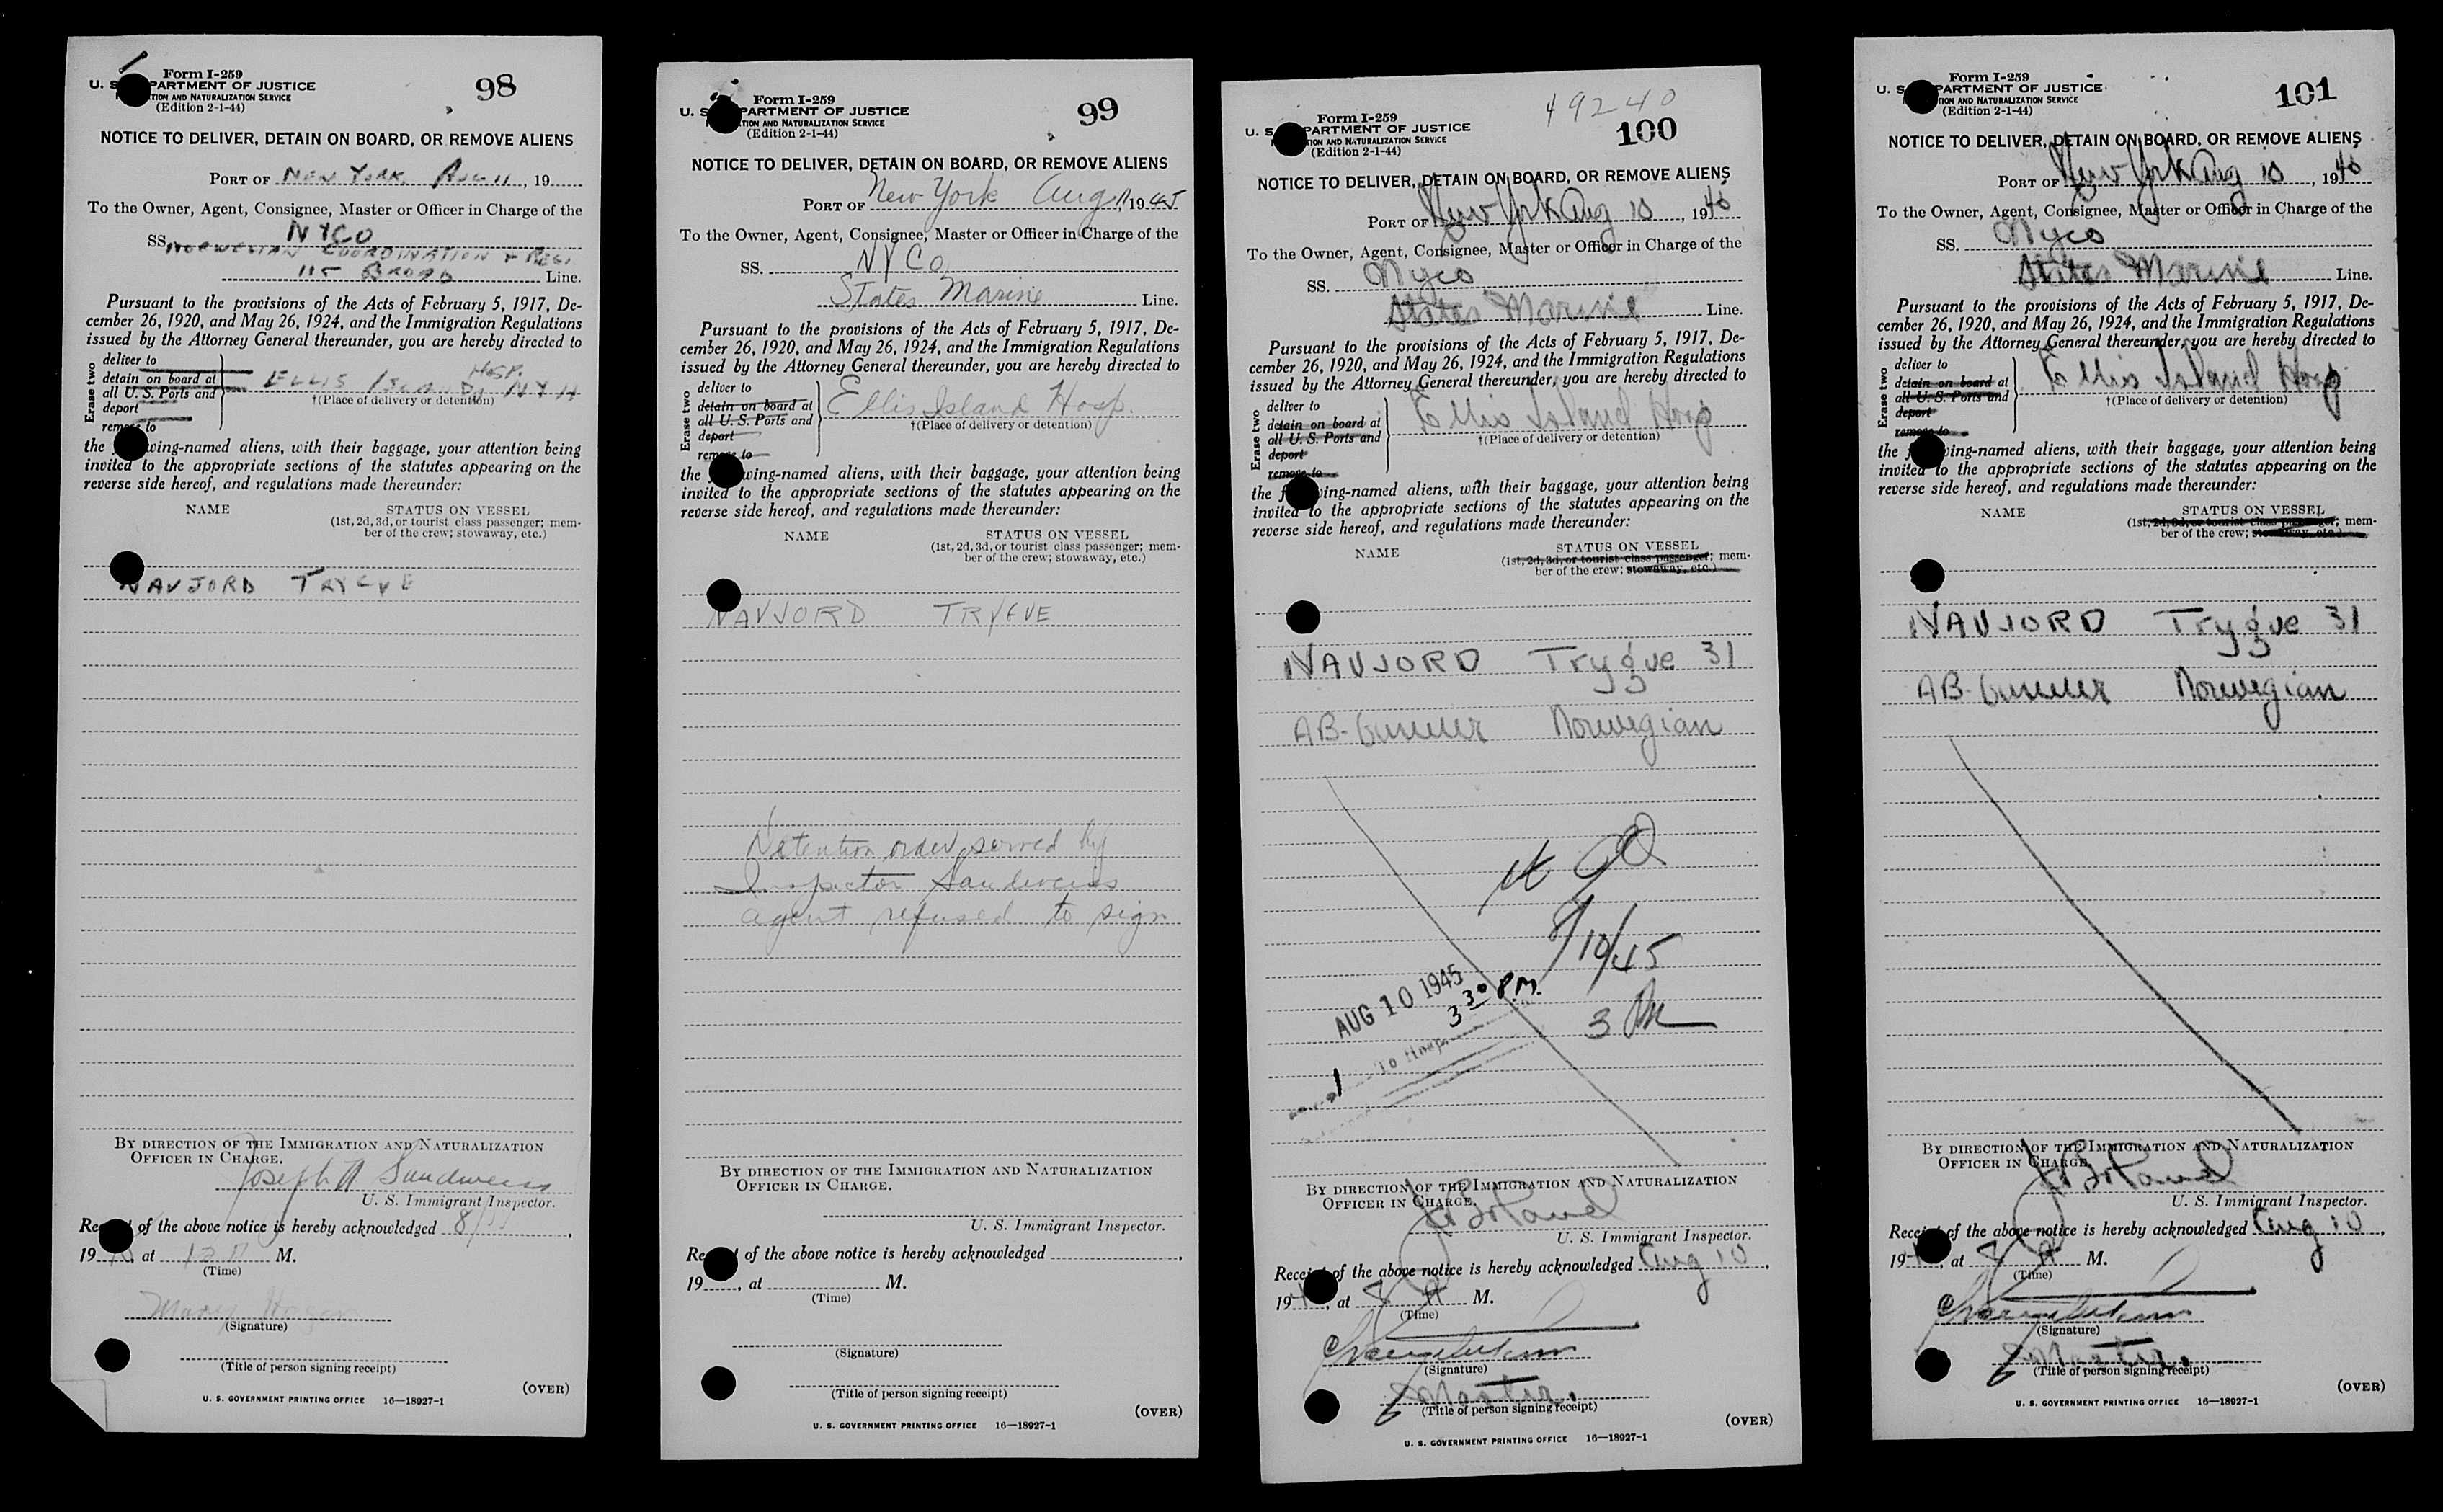 Form I-259
98
U. S. PARTMENT OF JUSTICE
TION AND NATURALIZATION SERVICE
(Edition 2-1-44)
NOTICE TO DELIVER, DETAIN ON BOARD, OR REMOVE ALIENS
PORT OF NEW YORK, AUG 11, 19
To the Owner, Agent, Consignee, Master or Officer in Charge of the
SS. NYCO
NORWEGIAN COORDINATION +
115 BROAD Line.
Pursuant to the provisions of the Acts of February 5, 1917, De-
cember 26, 1920, and May 26, 1924, and the Immigration Regulations
issued by the Attorney General thereunder, you are hereby directed to
Erase two
deliver to
detain on board at
all U. S. Ports and
deport
remove to
ELLIS ISLAND HOSP. NYH
†(Place of delivery or detention)
the wing-named aliens, with their baggage, your attention being
invited to the appropriate sections of the statutes appearing on the
reverse side hereof, and regulations made thereunder:
NAME
STATUS ON VESSEL
(1st, 2d, 3d, or tourist class passenger; mem-
ber of the crew; stowaway, etc.)
NAVJORD TRYGVE
BY DIRECTION OF THE IMMIGRATION AND NATURALIZATION
OFFICER IN CHARGE.
Joseph A Sandweiss
U. S. Immigrant Inspector.
Receipt of the above notice is hereby acknowledged 8/11,
19 , at 12 M.
(Time)
Mary Hogan
(Signature)
(Title of person signing receipt)
(OVER)
U. S. GOVERNMENT PRINTING OFFICE 16—18927-1
Form I-259
99
U. S. PARTMENT OF JUSTICE
TION AND NATURALIZATION SERVICE
(Edition 2-1-44)
NOTICE TO DELIVER, DETAIN ON BOARD, OR REMOVE ALIENS
PORT OF New York Aug 11 1945
To the Owner, Agent, Consignee, Master or Officer in Charge of the
SS. NYCo
States Marine Line.
Pursuant to the provisions of the Acts of February 5, 1917, De-
cember 26, 1920, and May 26, 1924, and the Immigration Regulations
issued by the Attorney General thereunder, you are hereby directed to
Erase two
deliver to
detain on board at
all U. S. Ports and
deport
remove to
Ellis Island Hosp.
†(Place of delivery or detention)
the wing-named aliens, with their baggage, your attention being
invited to the appropriate sections of the statutes appearing on the
reverse side hereof, and regulations made thereunder:
NAME
STATUS ON VESSEL
(1st, 2d, 3d, or tourist class passenger; mem-
ber of the crew; stowaway, etc.)
NAVJORD TRYGVE
Detention order served by
Inspector Sandweiss
agent refused to sign
BY DIRECTION OF THE IMMIGRATION AND NATURALIZATION
OFFICER IN CHARGE.
U. S. Immigrant Inspector.
Receipt of the above notice is hereby acknowledged ,
19 , at M.
(Time)
(Signature)
(Title of person signing receipt)
(OVER)
U. S. GOVERNMENT PRINTING OFFICE 16—18927-1
49240
Form I-259
100
U. S. PARTMENT OF JUSTICE
TION AND NATURALIZATION SERVICE
(Edition 2-1-44)
NOTICE TO DELIVER, DETAIN ON BOARD, OR REMOVE ALIENS
PORT OF New York Aug 10, 1945
To the Owner, Agent, Consignee, Master or Officer in Charge of the
SS. Nyco
States Marine Line.
Pursuant to the provisions of the Acts of February 5, 1917, De-
cember 26, 1920, and May 26, 1924, and the Immigration Regulations
issued by the Attorney General thereunder, you are hereby directed to
Erase two
deliver to
detain on board at
all U. S. Ports and
deport
remove to
Ellis Island Hosp
†(Place of delivery or detention)
the f wing-named aliens, with their baggage, your attention being
invited to the appropriate sections of the statutes appearing on the
reverse side hereof, and regulations made thereunder:
NAME
STATUS ON VESSEL
(1st, 2d, 3d, or tourist class passenger; mem-
ber of the crew; stowaway, etc.)
NAVJORD Trygve 31
AB-Gunner Norwegian
8/10/45
AUG 10 1945
3 30 P.M.
3 PM
1 To Hosp.
BY DIRECTION OF THE IMMIGRATION AND NATURALIZATION
OFFICER IN CHARGE.
U. S. Immigrant Inspector.
Receipt of the above notice is hereby acknowledged Aug 10,
194 , at 8 A M.
(Time)
(Signature)
Master.
(Title of person signing receipt)
(OVER)
U. S. GOVERNMENT PRINTING OFFICE 16—18927-1
Form I-259
101
U. S. PARTMENT OF JUSTICE
TION AND NATURALIZATION SERVICE
(Edition 2-1-44)
NOTICE TO DELIVER, DETAIN ON BOARD, OR REMOVE ALIENS
PORT OF New York Aug 10, 1945
To the Owner, Agent, Consignee, Master or Officer in Charge of the
SS. Nyco
States Marine Line.
Pursuant to the provisions of the Acts of February 5, 1917, De-
cember 26, 1920, and May 26, 1924, and the Immigration Regulations
issued by the Attorney General thereunder, you are hereby directed to
Erase two
deliver to
detain on board at
all U. S. Ports and
deport
remove to
Ellis Island Hosp
†(Place of delivery or detention)
the f wing-named aliens, with their baggage, your attention being
invited to the appropriate sections of the statutes appearing on the
reverse side hereof, and regulations made thereunder:
NAME
STATUS ON VESSEL
(1st, 2d, 3d, or tourist class passenger; mem-
ber of the crew; stowaway, etc.)
NAVJORD Trygve 31
AB-Gunner Norwegian
BY DIRECTION OF THE IMMIGRATION AND NATURALIZATION
OFFICER IN CHARGE.
U. S. Immigrant Inspector.
Receipt of the above notice is hereby acknowledged Aug 10,
194 , at 8 A M.
(Time)
(Signature)
Master.
(Title of person signing receipt)
(OVER)
U. S. GOVERNMENT PRINTING OFFICE 16—18927-1